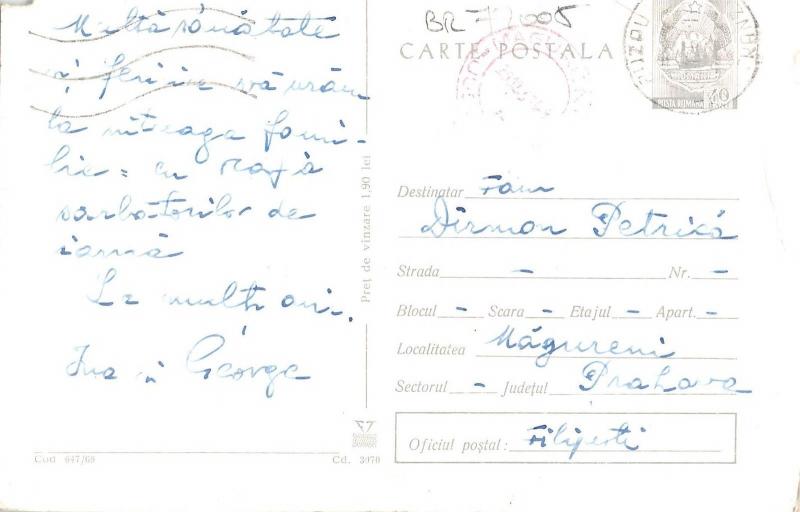 Multă sănătate
și fericire vă urăm
la întreaga fami-
lie = cu ocazia
sărbătorilor de
iarnă
La mulți ani.
Ina și George
Preț de vînzare 1,90 lei
Cod 647/69
Cd. 3970
BR-77005
CARTE POSTALA
BUZAU
POSTA ROMANA
40
Destinatar Fam
Dîrmon Petrică
Strada - Nr. -
Blocul - Scara - Etajul - Apart. -
Localitatea Măgureni
Sectorul - Județul Prahova
Oficiul poștal: Filipești